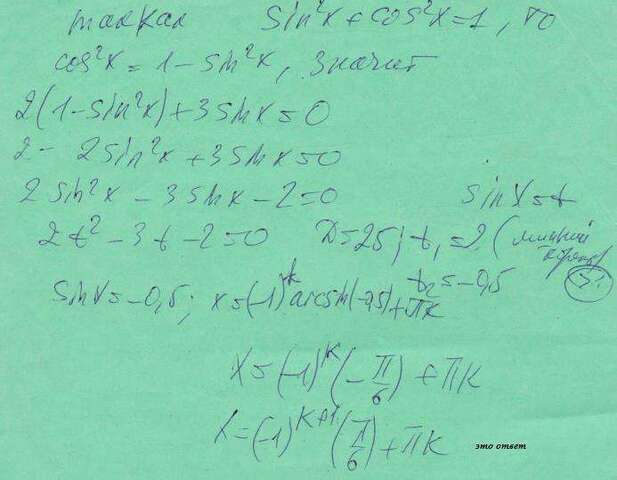 так как sin²x + cos²x = 1, то
cos²x = 1 - sin²x, значит
2(1 - sin²x) + 3 sin x = 0
2 - 2 sin²x + 3 sin x = 0
2 sin²x - 3 sin x - 2 = 0 sin x = t
2t² - 3t - 2 = 0 D = 25; t₁ = 2 (лишний корень)
t₂ = -0,5
sin x = -0,5; x = (-1)ᵏ arcsin(-0,5) + πk
x = (-1)ᵏ (-π/6) + πk
x = (-1)ᵏ⁺¹ (π/6) + πk это ответ